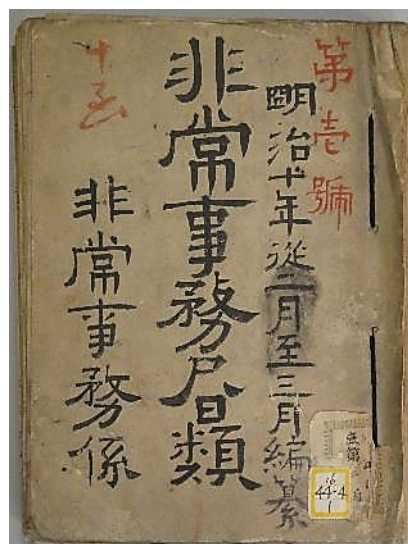 第壱號
明治十年従二月至三月編纂
非常事務書類
非常事務係
十五
無第
16
44-4
1